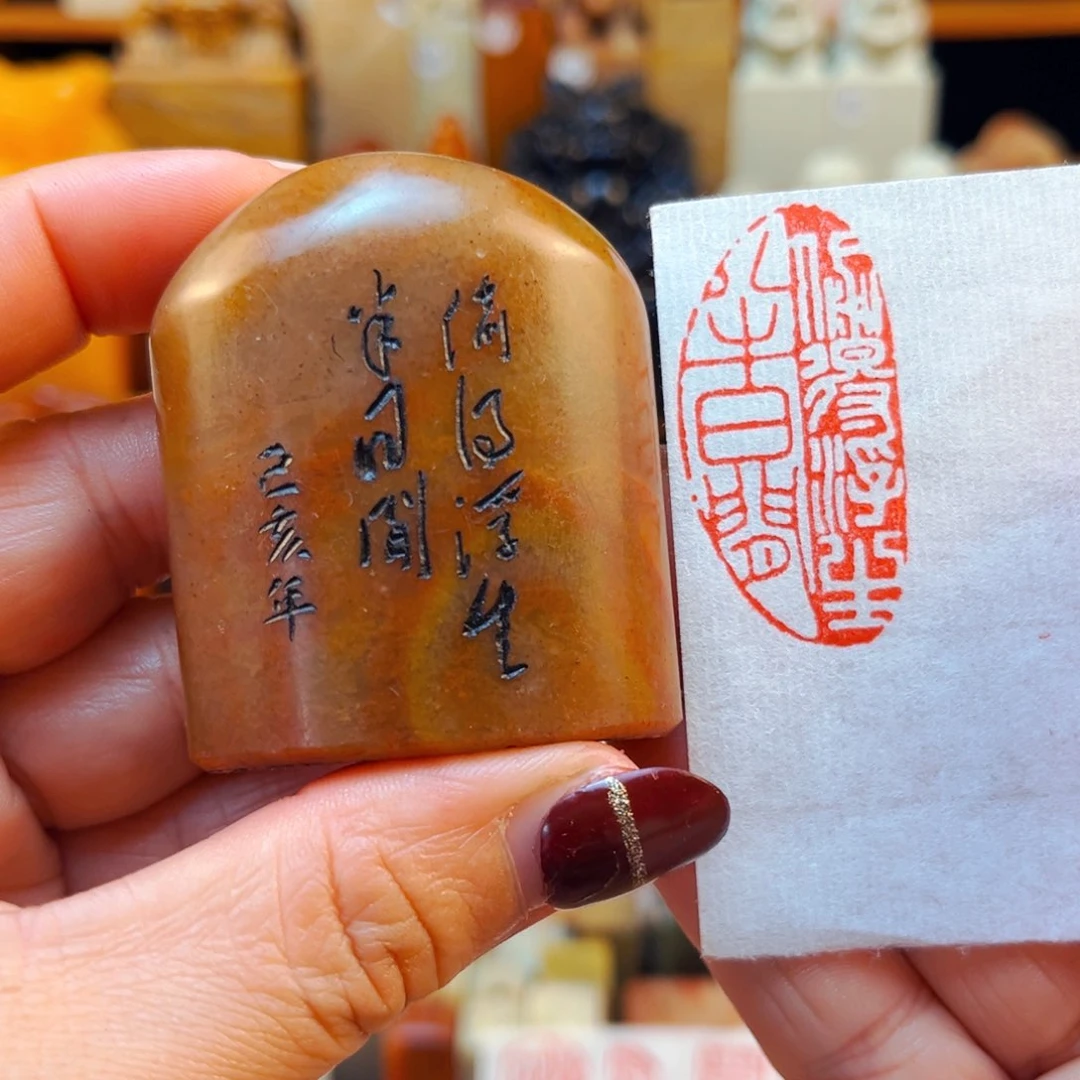 偷得浮生
半日閒
己亥年
偷得浮生
半日閒